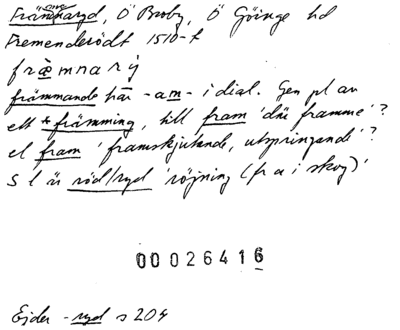 Främmaryd, Ö Broby, Ö Göinge hd
Fremenderödt 1510-t
fræmnarij
främmande här -am- i dial. Gen pl av
ett *främming, till fram 'där framme'?
el fram 'framskjutande, utspringande'?
S l är röd/ryd 'röjning (fr a i skog)'
00026416
Ejder -ryd s 204